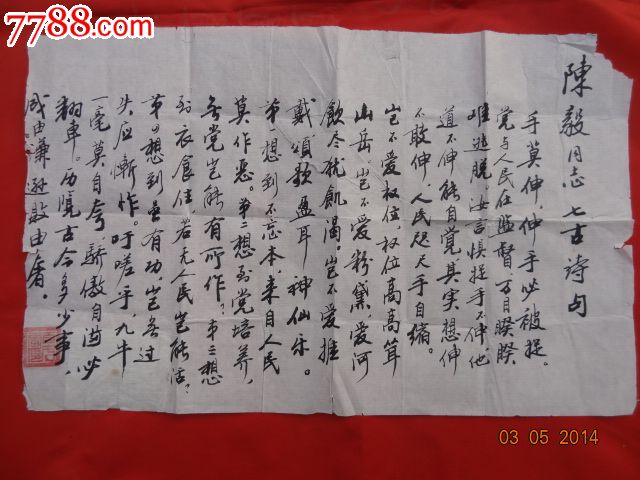 7788.com
陳毅同志七古詩句
手莫伸,伸手必被捉。
党与人民在監督,万目睽睽
难逃脱。汝言惧捉手不伸,他
道不伸能自覚,其实想伸
不敢伸,人民咫尺手自縮。
岂不爱权位,权位高高耸
山岳。岂不爱粉黛,爱河
飲尽犹飢渴。岂不爱推
戴,頌歌盈耳神仙乐。
第一想到不忘本,来自人民
莫作恶。第二想到党培养,
无党岂能有所作?第三想
到衣食住,若无人民岂能活?
第四想到虽有功,岂无过
失应惭怍。吁嗟乎,九牛
一毫莫自夸,骄傲自满必
翻車。历覧古今多少事,
成由谦逊敗由奢。
03 05 2014